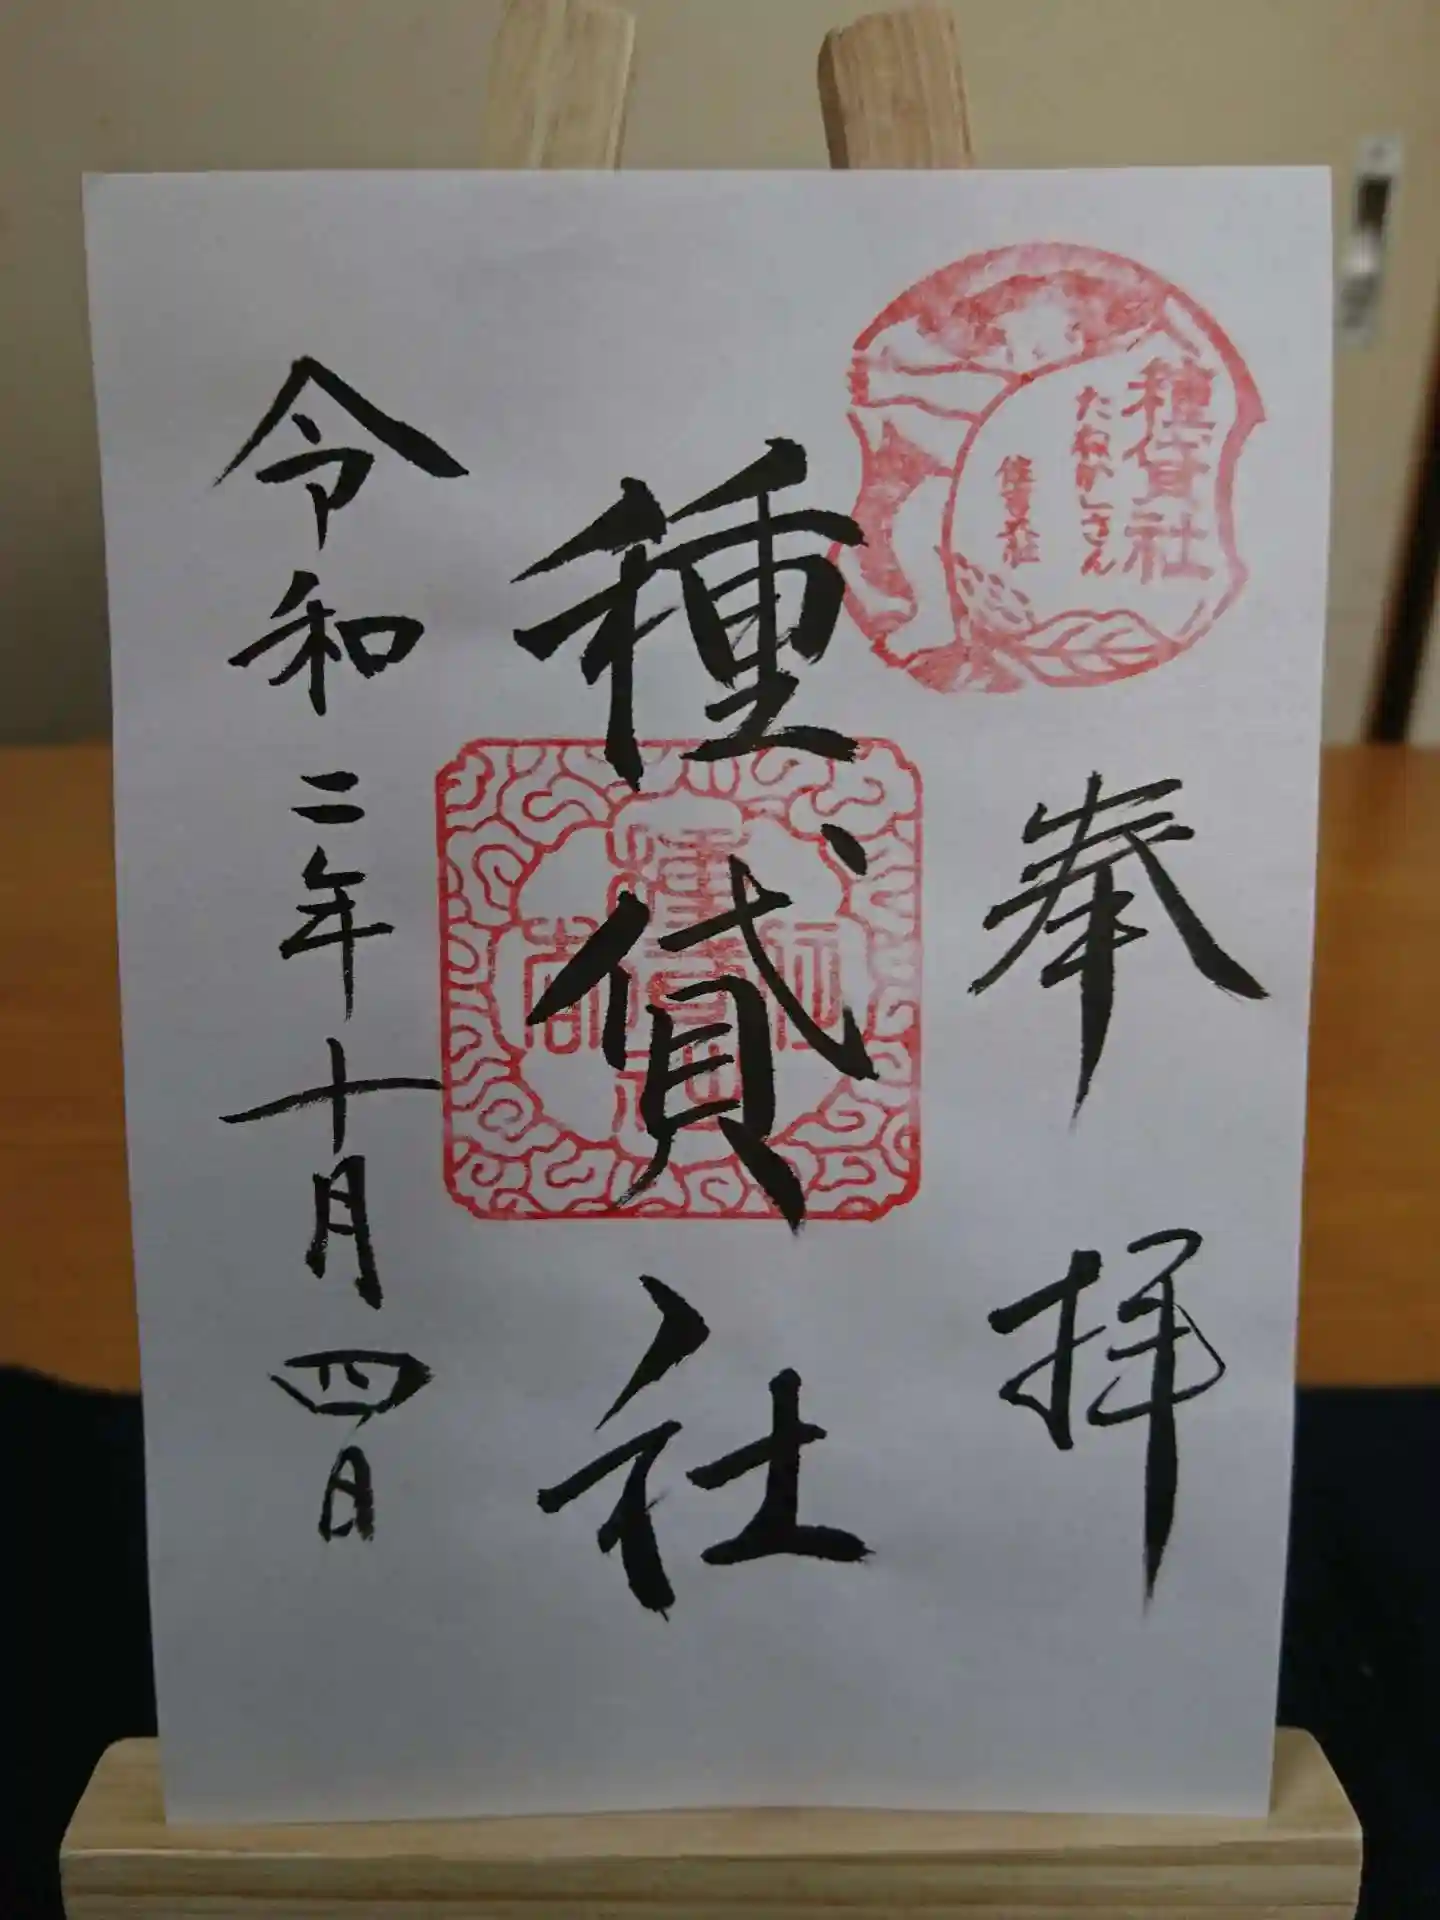 種貸社
たねかしさん
住吉大社
奉拝
種貸社
令和二年十月四日